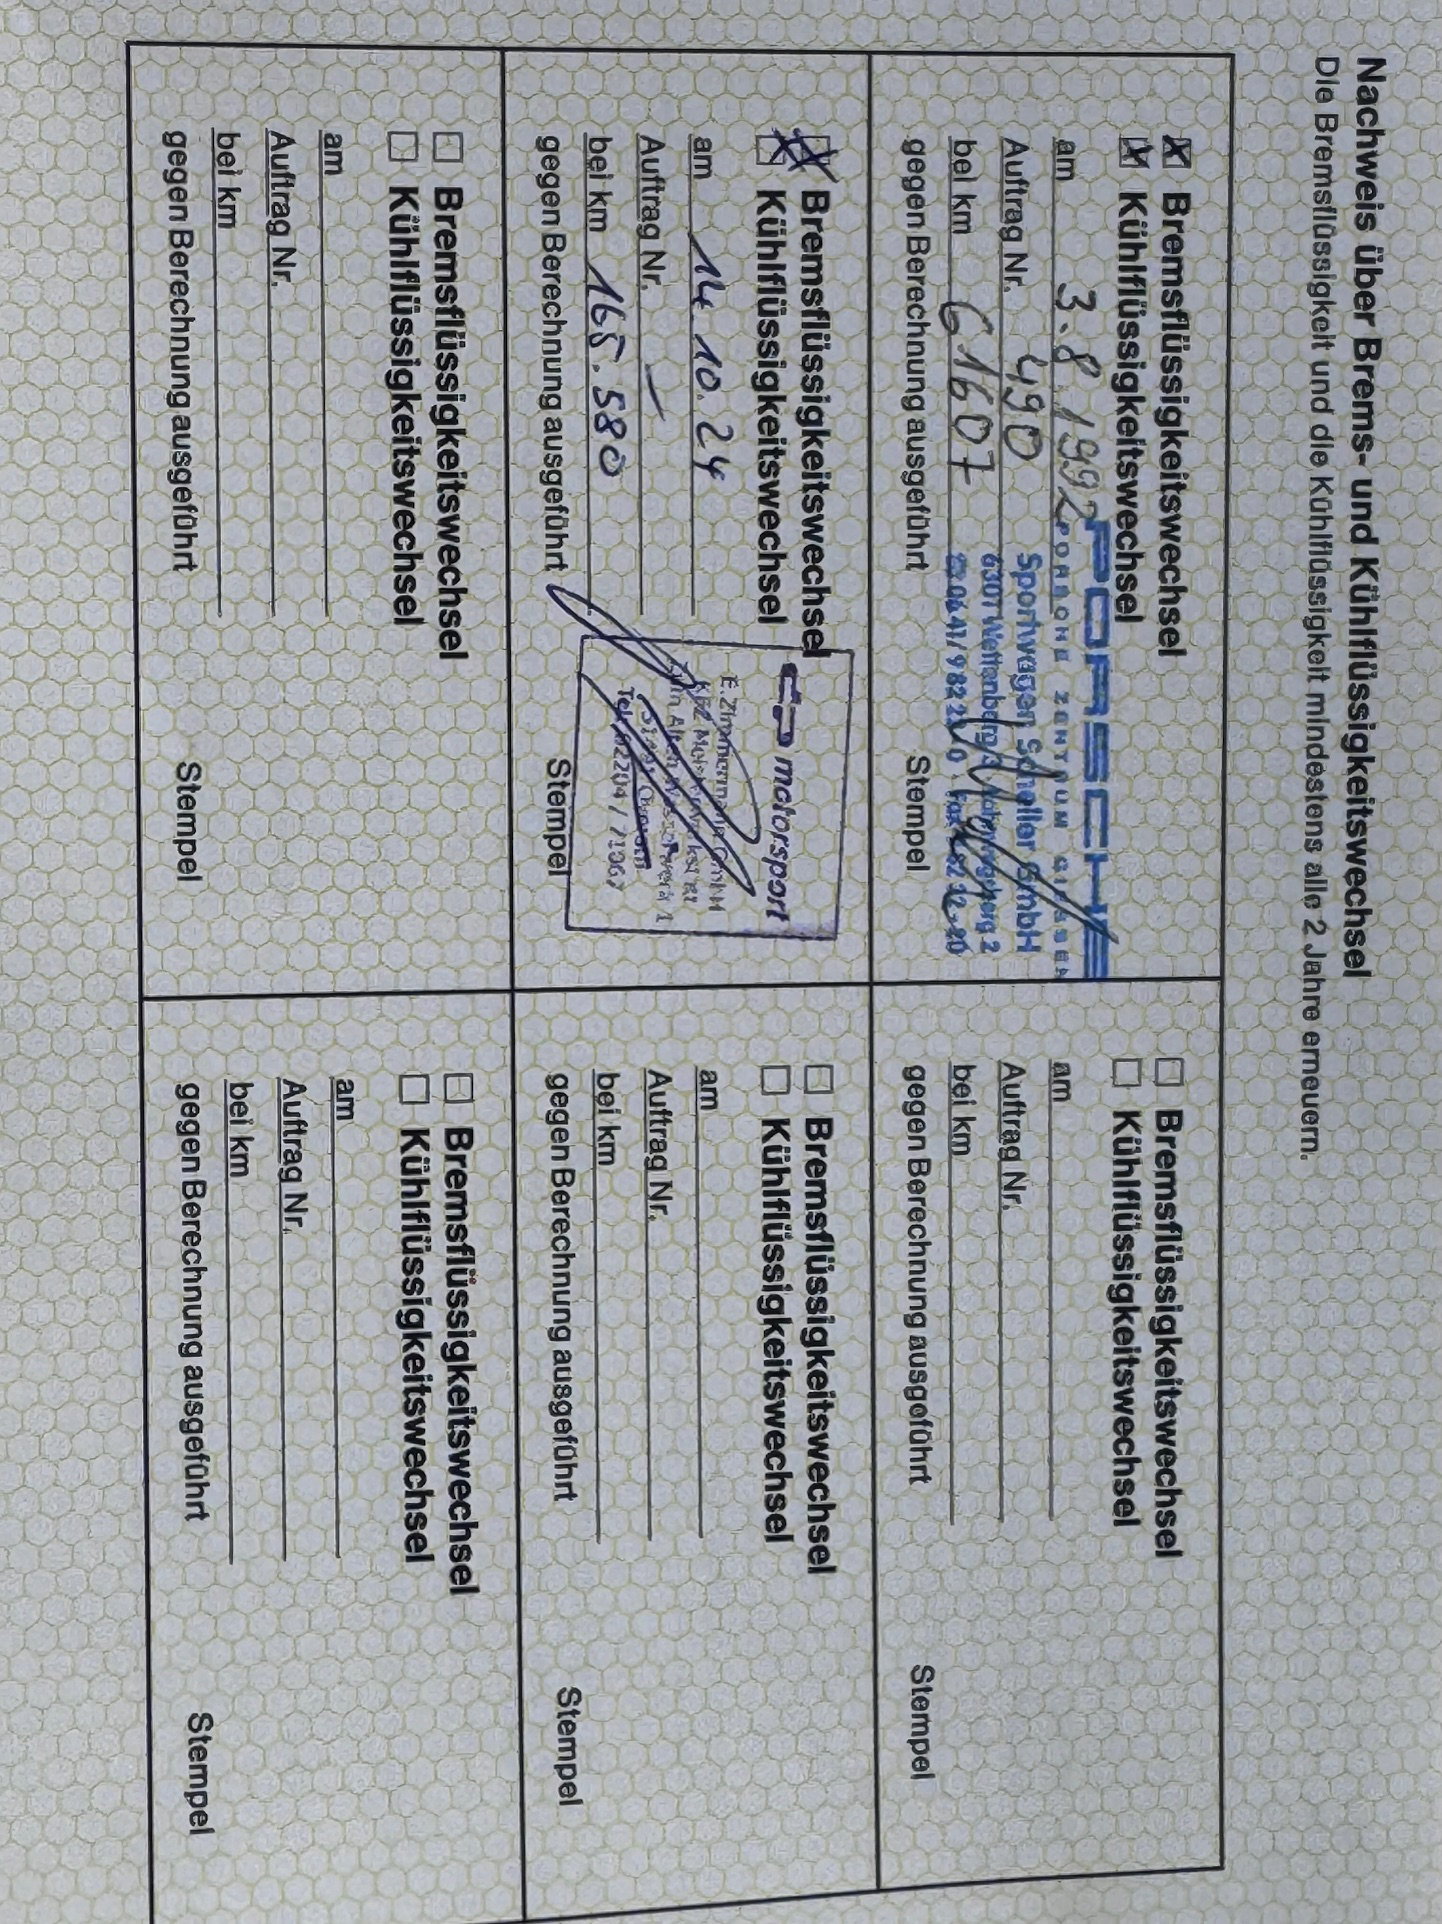 Nachweis über Brems- und Kühlflüssigkeitswechsel
Die Bremsflüssigkeit und die Kühlflüssigkeit mindestens alle 2 Jahre erneuern.
x Bremsflüssigkeitswechsel
x Kühlflüssigkeitswechsel
am 3.8.1992
Auftrag Nr. 490
bei km 61607
gegen Berechnung ausgeführt
PORSCHE
PORSCHE ZENTRUM GIESSEN
Sportwagen Scheller GmbH
6301 Wettenberg
Stempel
Bremsflüssigkeitswechsel
Kühlflüssigkeitswechsel
am
Auftrag Nr.
bei km
gegen Berechnung ausgeführt
Stempel
x Bremsflüssigkeitswechsel
x Kühlflüssigkeitswechsel
am 14.10.24
Auftrag Nr. —
bei km 165.580
gegen Berechnung ausgeführt
motorsport
E. Zimmermann GmbH
Tel.
Stempel
Bremsflüssigkeitswechsel
Kühlflüssigkeitswechsel
am
Auftrag Nr.
bei km
gegen Berechnung ausgeführt
Stempel
Bremsflüssigkeitswechsel
Kühlflüssigkeitswechsel
am
Auftrag Nr.
bei km
gegen Berechnung ausgeführt
Stempel
Bremsflüssigkeitswechsel
Kühlflüssigkeitswechsel
am
Auftrag Nr.
bei km
gegen Berechnung ausgeführt
Stempel